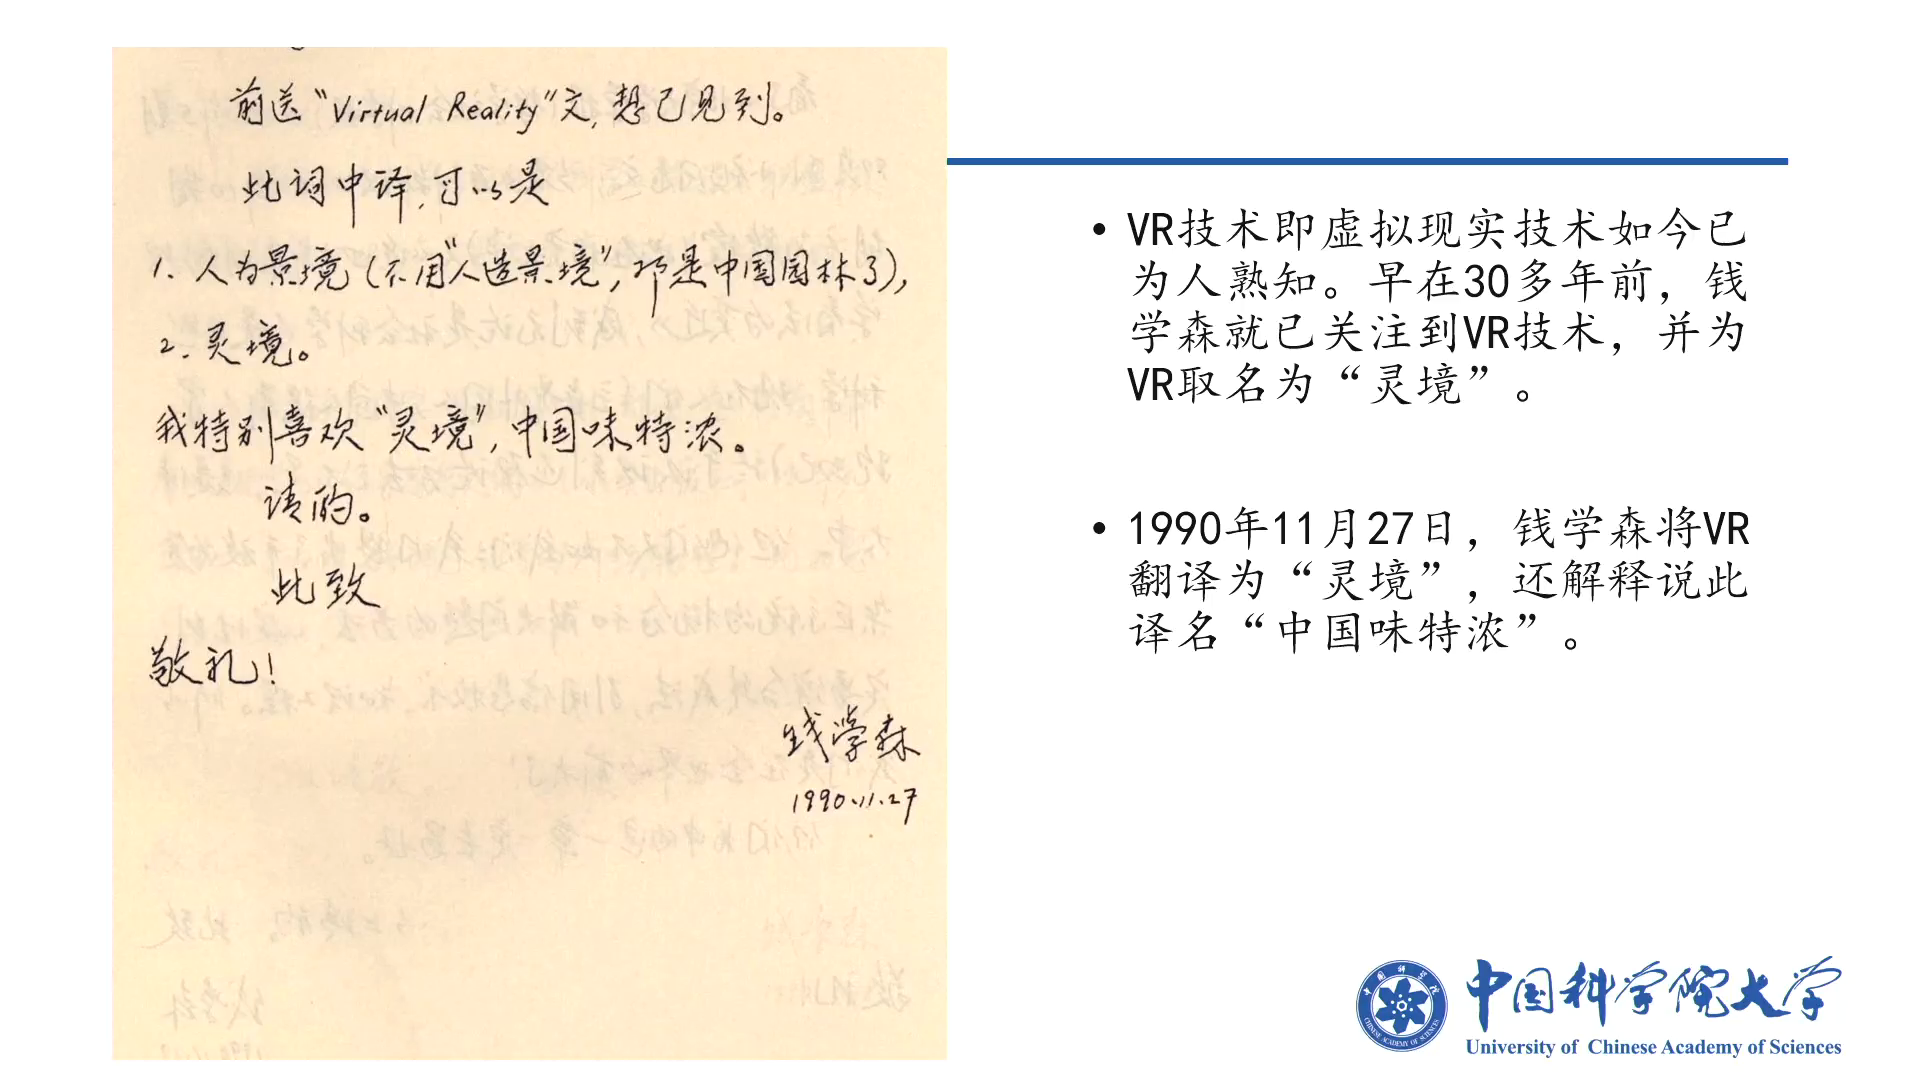 前送“Virtual Reality”文,想已见到。
此词中译,可以是
1. 人为景境(不用“人造景境”,那是中国园林了),
2. 灵境。
我特别喜欢“灵境”,中国味特浓。
请酌。
此致
敬礼!
钱学森
1990.11.27
• VR技术即虚拟现实技术如今已
为人熟知。早在30多年前，钱
学森就已关注到VR技术，并为
VR取名为“灵境”。
• 1990年11月27日，钱学森将VR
翻译为“灵境”，还解释说此
译名“中国味特浓”。
中国科学院
CHINESE ACADEMY OF SCIENCES
中国科学院大学
University of Chinese Academy of Sciences